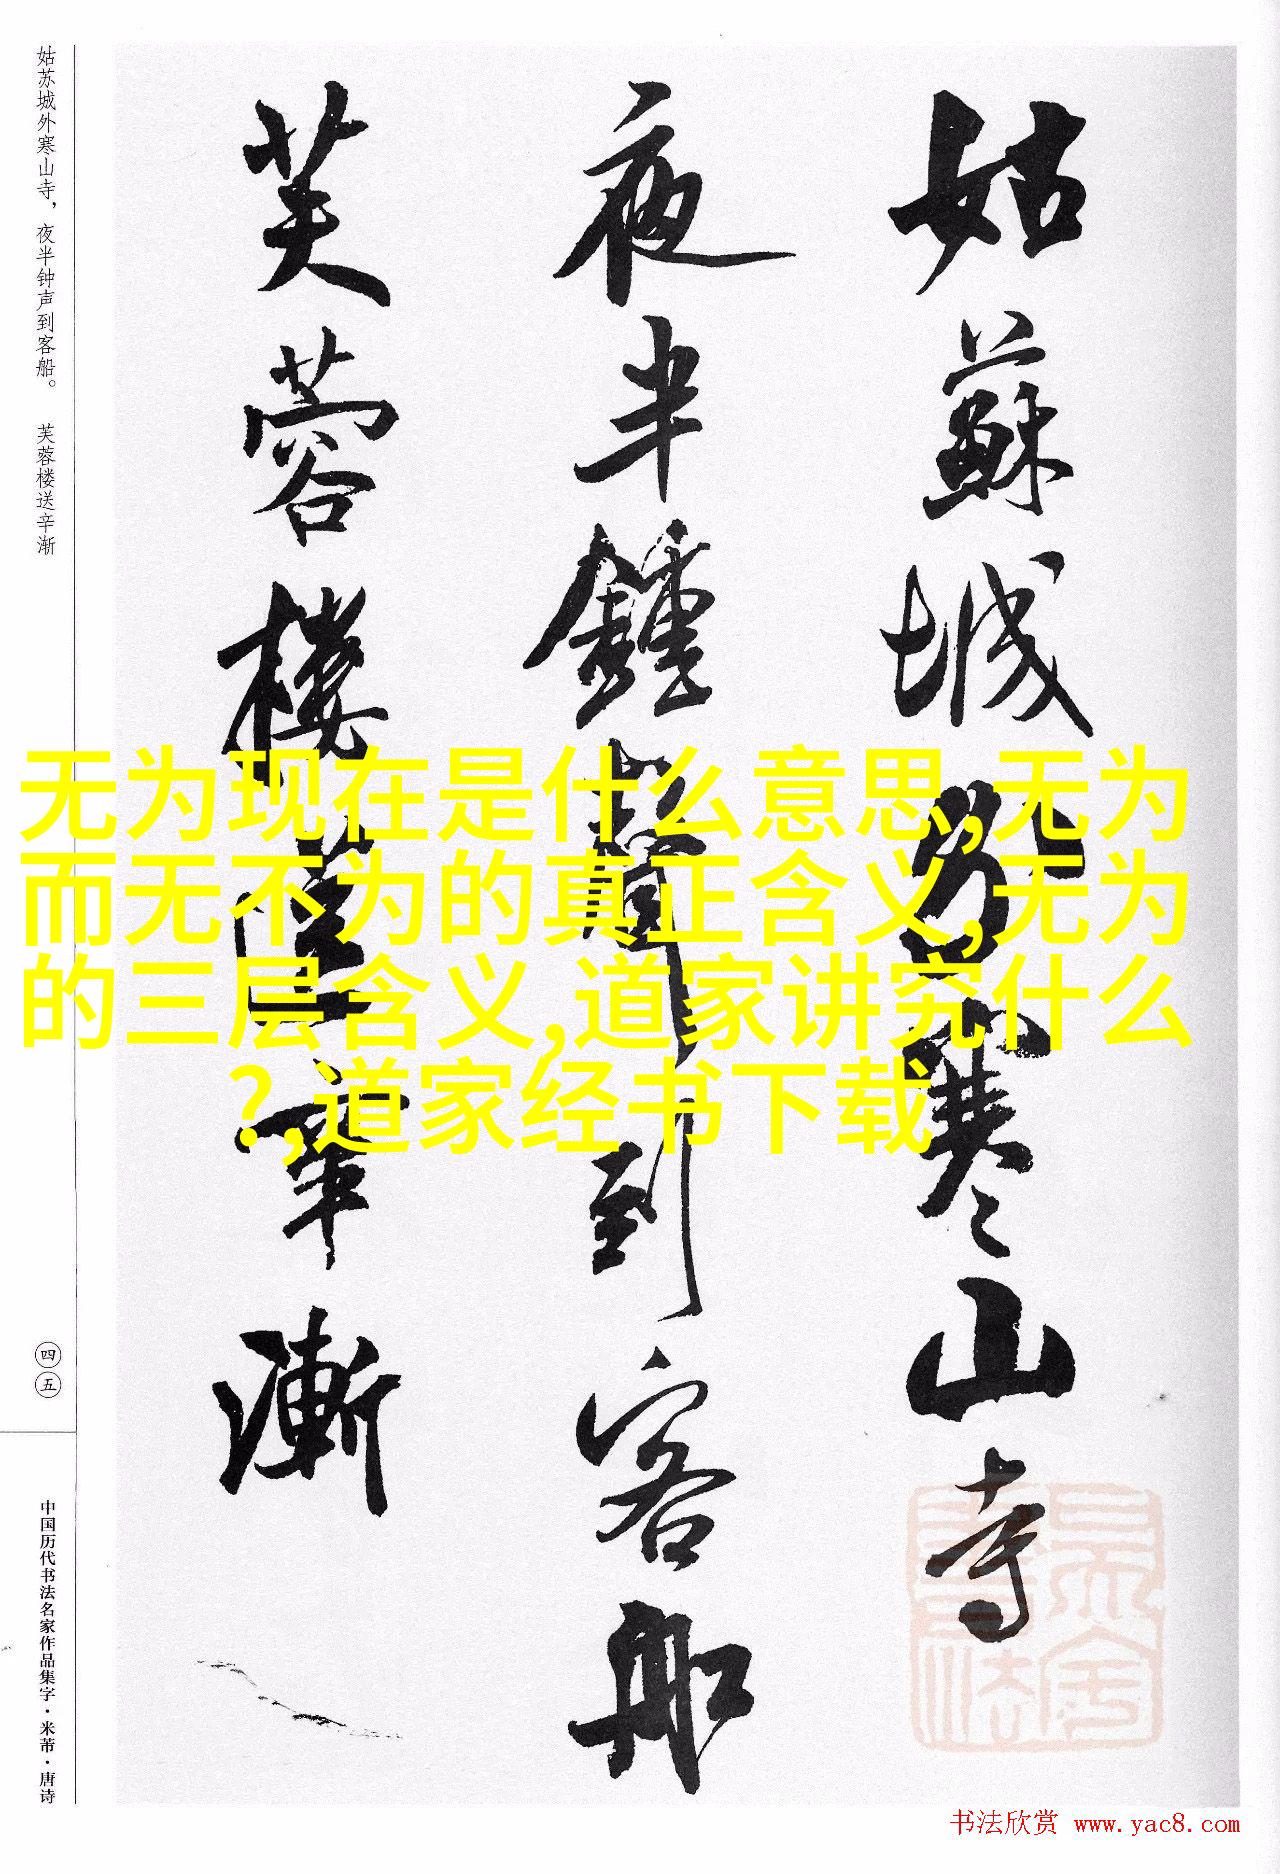 姑苏城外寒山寺，夜半钟声到客船。 芙蓉楼送辛渐
姑蘇城外寒山寺
夜半鍾聲到客船
芙蓉樓送辛漸
无为现在是什么意思,无为
而无不为的真正含义,无为
的三层含义,道家讲究什么
?,道家经书下载
四五
中国历代书法名家作品集字·米芾·唐诗
书法欣赏 www.yac8.com